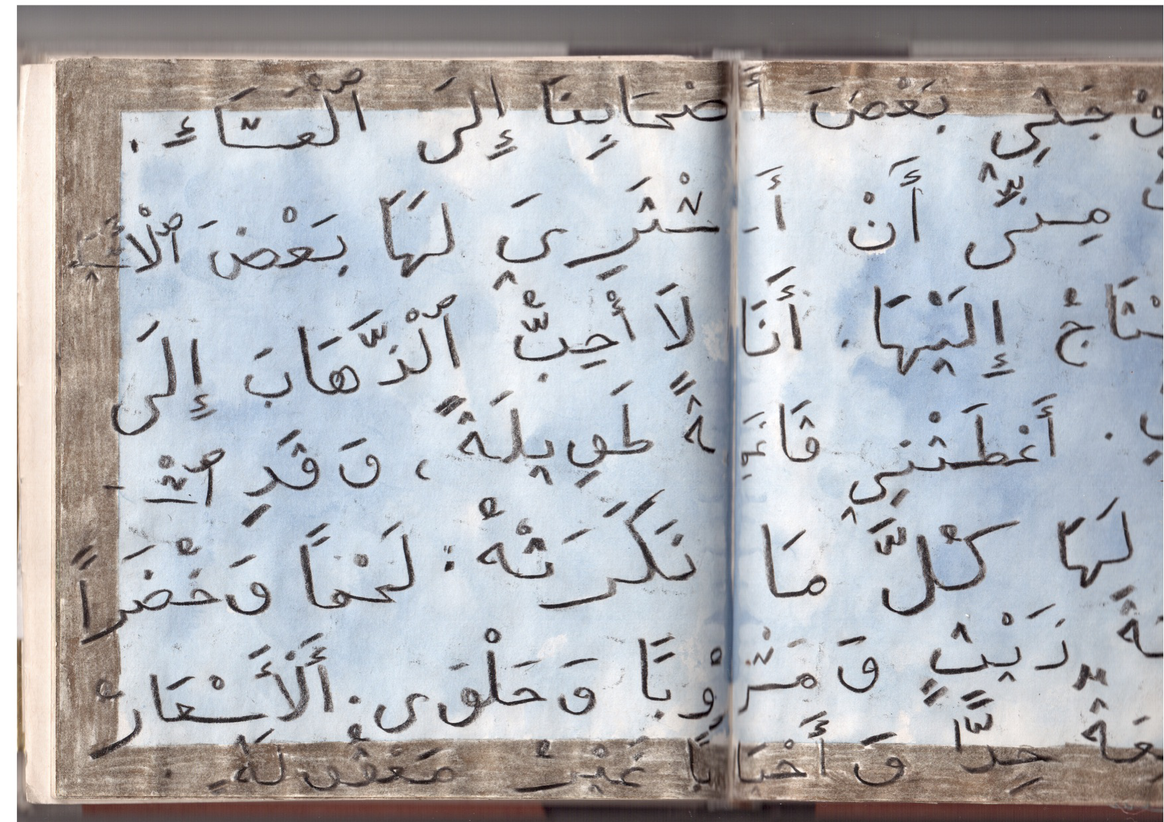 بَعْضَ أَصْحَابِنَا إِلَى ٱلْعَشَاءِ.
مِنِّي أَنْ أَشْتَرِيَ لَهَا بَعْضَ
إِلَيْهَا. أَنَا لَا أُحِبُّ ٱلْذَّهَابَ إِلَى
أَعْطَتْنِي قَائِمَةً طَوِيلَةً، وَقَدِ
لَهَا كُلَّ مَا ذَكَرَتْهُ: لَحْمًا وَخُضَرًا
زَيْتٍ وَمَشْرُوبًا وَحَلْوَى. أَلْأَسْعَارُ
جِدًّا وَأَحْيَانًا غَيْرُ مَعْقُولَةٍ.